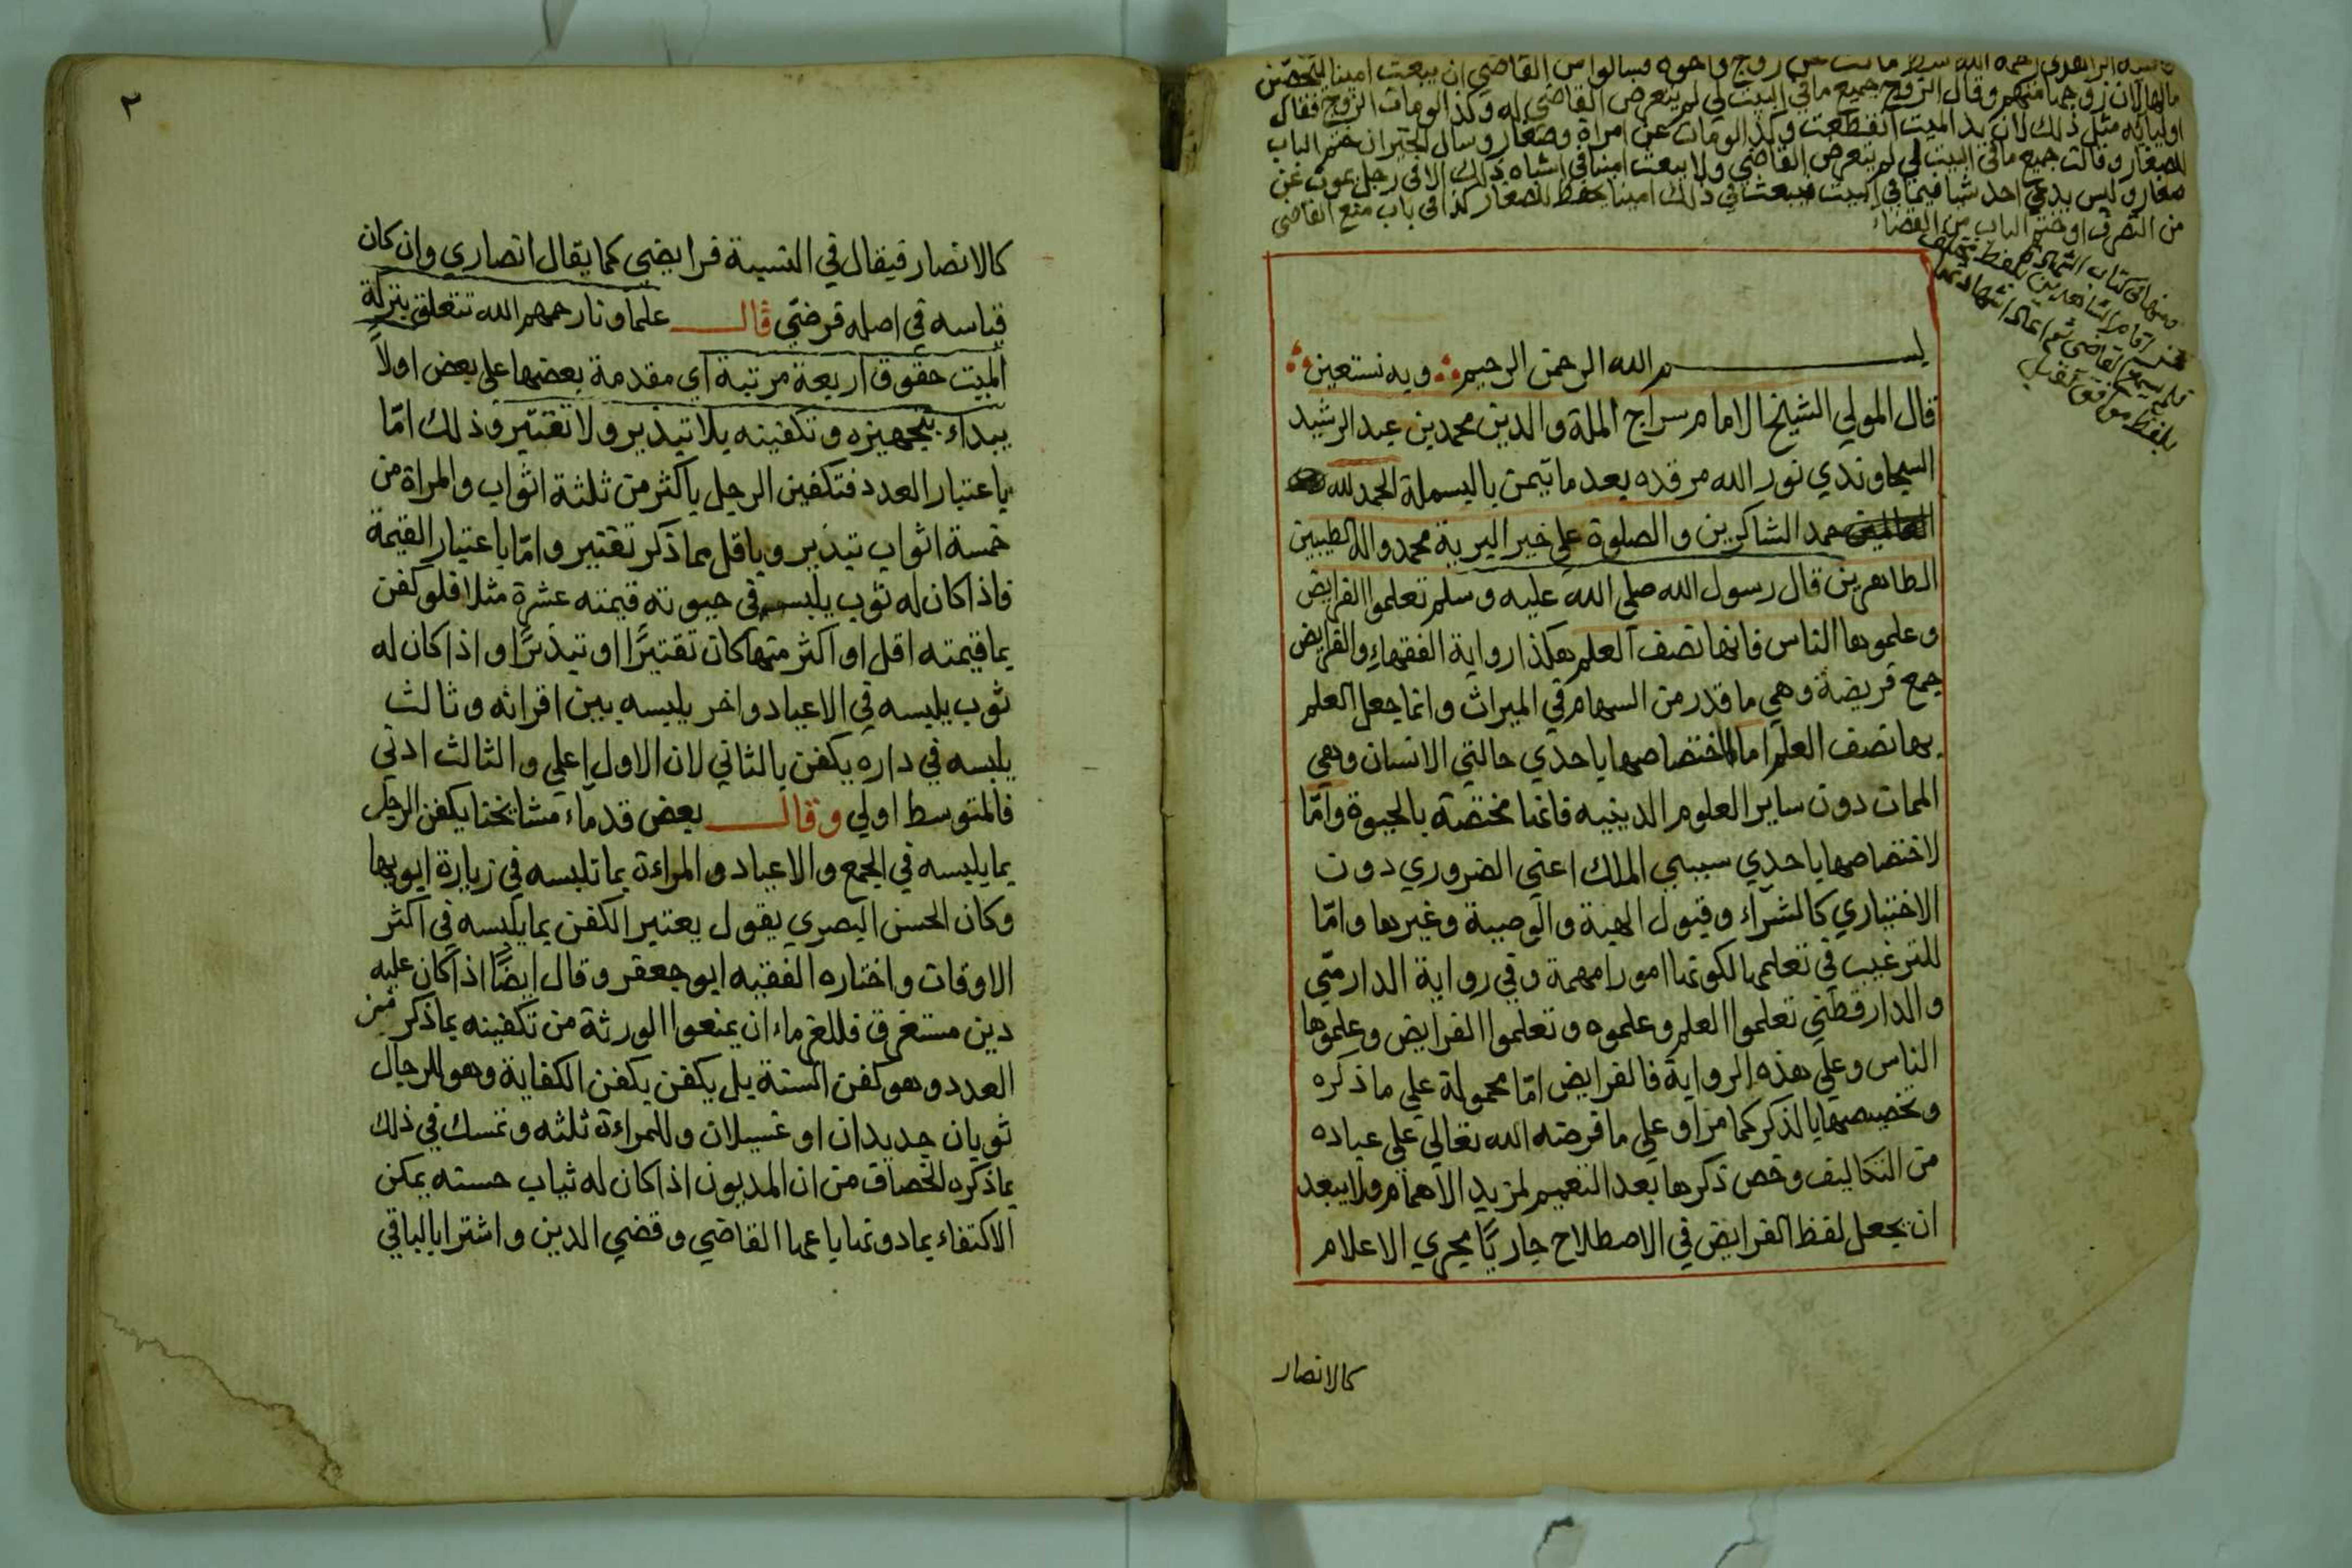 مالها لان زوجها منهم وقال الزوج جميع ما في البيت لي لم يتعرض القاضي له وكذا لو مات الزوج فقال
اوليائه مثل ذلك لان يد الميت انقطعت وكذا لو مات عن امراة وصغار وسال الجيران ختم الباب
للصغار وقالت جميع ما في البيت لي لم يتعرض القاضي ولا يبعث امينا في اشباه ذلك الا في رجل يموت عن
صغار وليس يدعي احد شيا فيما في البيت فيبعث في ذلك امينا يحفظ للصغار كذا في باب منع القاضي
من التصرف او ختم الباب من القضاء
بسم الله الرحمن الرحيم وبه نستعين
قال المولي الشيخ الامام سراج الملة والدين محمد بن عبد الرشيد
السجاوندي نور الله مرقده بعد ما تيمن بالبسملة الحمد لله
العالمين حمد الشاكرين والصلوة علي خير البرية محمد واله الطيبين
الطاهرين قال رسول الله صلي الله عليه وسلم تعلموا الفرايض
وعلموها الناس فانها نصف العلم هكذا رواية الفقهاء والفرايض
جمع فريضة وهي ما قدر من السهام في الميراث وانما جعل العلم
بها نصف العلم اما لاختصاصها باحدي حالتي الانسان وهي
الممات دون ساير العلوم الدينيه فانها مختصة بالحيوة واما
لاختصاصها باحدي سببي الملك اعني الضروري دون
الاختياري كالشراء وقبول الهبة والوصية وغيرها واما
للترغيب في تعلمها لكونها امورا مهمة وفي رواية الدارمي
والدارقطني تعلموا العلم وعلموه وتعلموا الفرايض وعلموها
الناس وعلي هذه الرواية فالفرايض اما محمولة علي ما ذكره
وتخصيصها بالذكر كما مر او علي ما فرضه الله تعالي علي عباده
من التكاليف وخص ذكرها بعد التعميم لمزيد الاهمام ولا يبعد
ان يجعل لفظ الفرايض في الاصطلاح جاريا مجري الاعلام
كالانصار
٢
كالانصار فيقال في النسبة فرايضي كما يقال انصاري وان كان
قياسه في اصله فرضي قال علماونا رحمهم الله تتعلق بتركة
الميت حقوق اربعة مرتبة اي مقدمة بعضها علي بعض اولا
يبداء بتجهيزه وتكفينه بلا تبذير ولا تقتير وذلك اما
باعتبار العدد فتكفين الرجل باكثر من ثلثة اثواب والمراة من
خمسة اثواب تبذير وباقل مما ذكر تقتير واما باعتبار القيمة
فاذا كان له ثوب يلبسه في حيوته قيمته عشرة مثلا فلو كفن
بما قيمته اقل او اكثر منها كان تقتيرا او تبذيرا واذا كان له
ثوب يلبسه في الاعياد واخر يلبسه بين اقرانه وثالث
يلبسه في داره يكفن بالثاني لان الاول اعلي والثالث ادني
فالمتوسط اولي وقال بعض قدماء مشايخنا يكفن الرجل
بما يلبسه في الجمع والاعياد والمراءة بما تلبسه في زيارة ابويها
وكان الحسن البصري يقول يعتبر الكفن بما يلبسه في اكثر
الاوقات واختاره الفقيه ابو جعفر وقال ايضا اذا كان عليه
دين مستغرق فللغرماء ان يمنعوا الورثة من تكفينه بما ذكر من
العدد وهو كفن السنة بل يكفن بكفن الكفاية وهو للرجال
ثوبان جديدان او غسيلان وللمراءة ثلثه وتمسك في ذلك
بما ذكره الخصاف من ان المديون اذا كان له ثياب حسنه يمكن
الاكتفاء بما دونها باعها القاضي وقضي الدين واشترا بالباقي